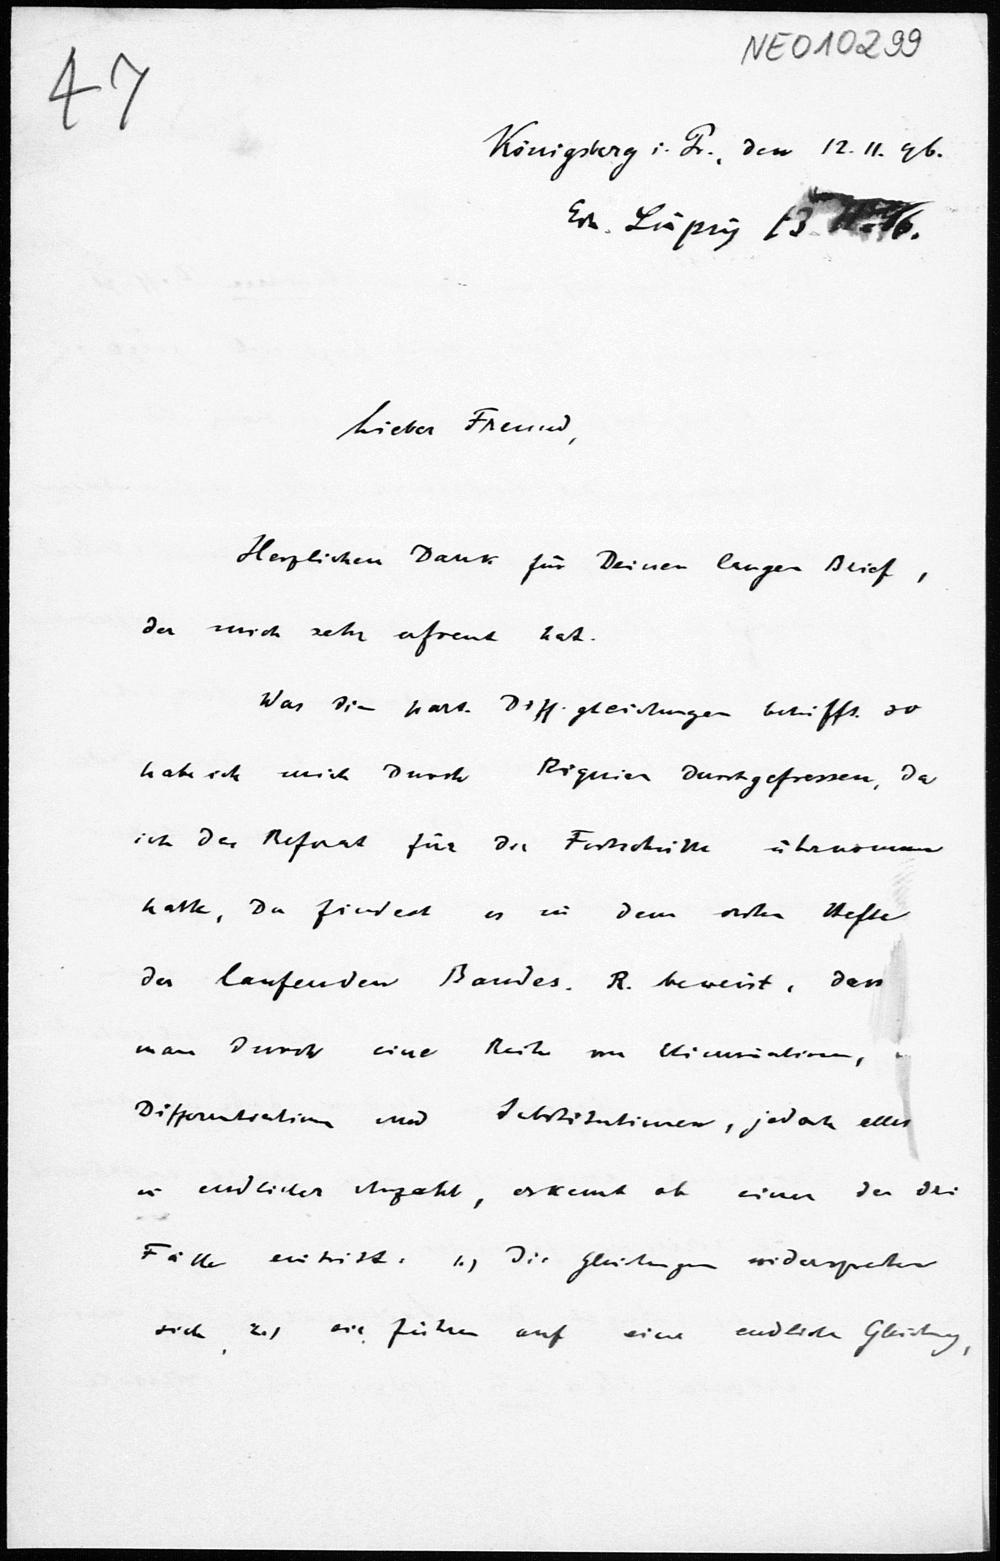 47
NEO10299
Königsberg i. Pr., den 12. 11. 96.
Erh. Leipzig 13. 11. 96.
Lieber Freund,
Herzlichen Dank für Deinen langen Brief,
der mich sehr erfreut hat.
Was die part. Diff.gleichungen betrifft so
habe ich mich durch Riquier durchgefressen, da
ich das Referat für die Fortschritte übernommen
hatte, Du findest es in dem ersten Hefte
des laufenden Bandes. R. beweist, dass
man durch eine Reihe von Eliminationen,
Differentiationen und Substitutionen, jedoch alles
in endlicher Anzahl, erkennt ob einer der drei
Fälle eintritt. 1.) Die Gleichungen widersprechen
sich, 2.) sie führen auf eine endliche Gleichung,